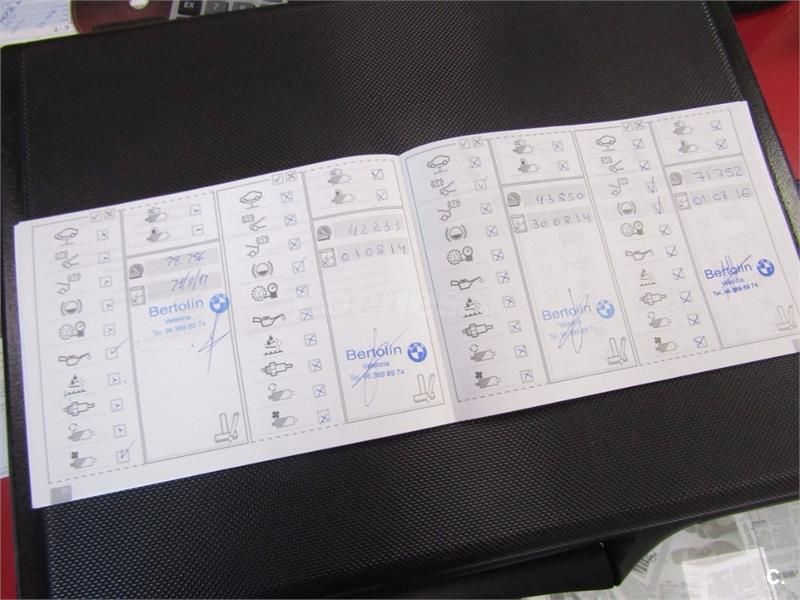 78.756
29/8/17
Bertolín
Valencia
Tel. 96 369 89 74
42233
010814
Bertolín
Valencia
Tel. 96 369 89 74
43850
300814
Bertolín
Valencia
Tel. 96 369 89 74
71792
010816
Bertolín
Valencia
Tel. 96 369 89 74
EX
7
8
C.